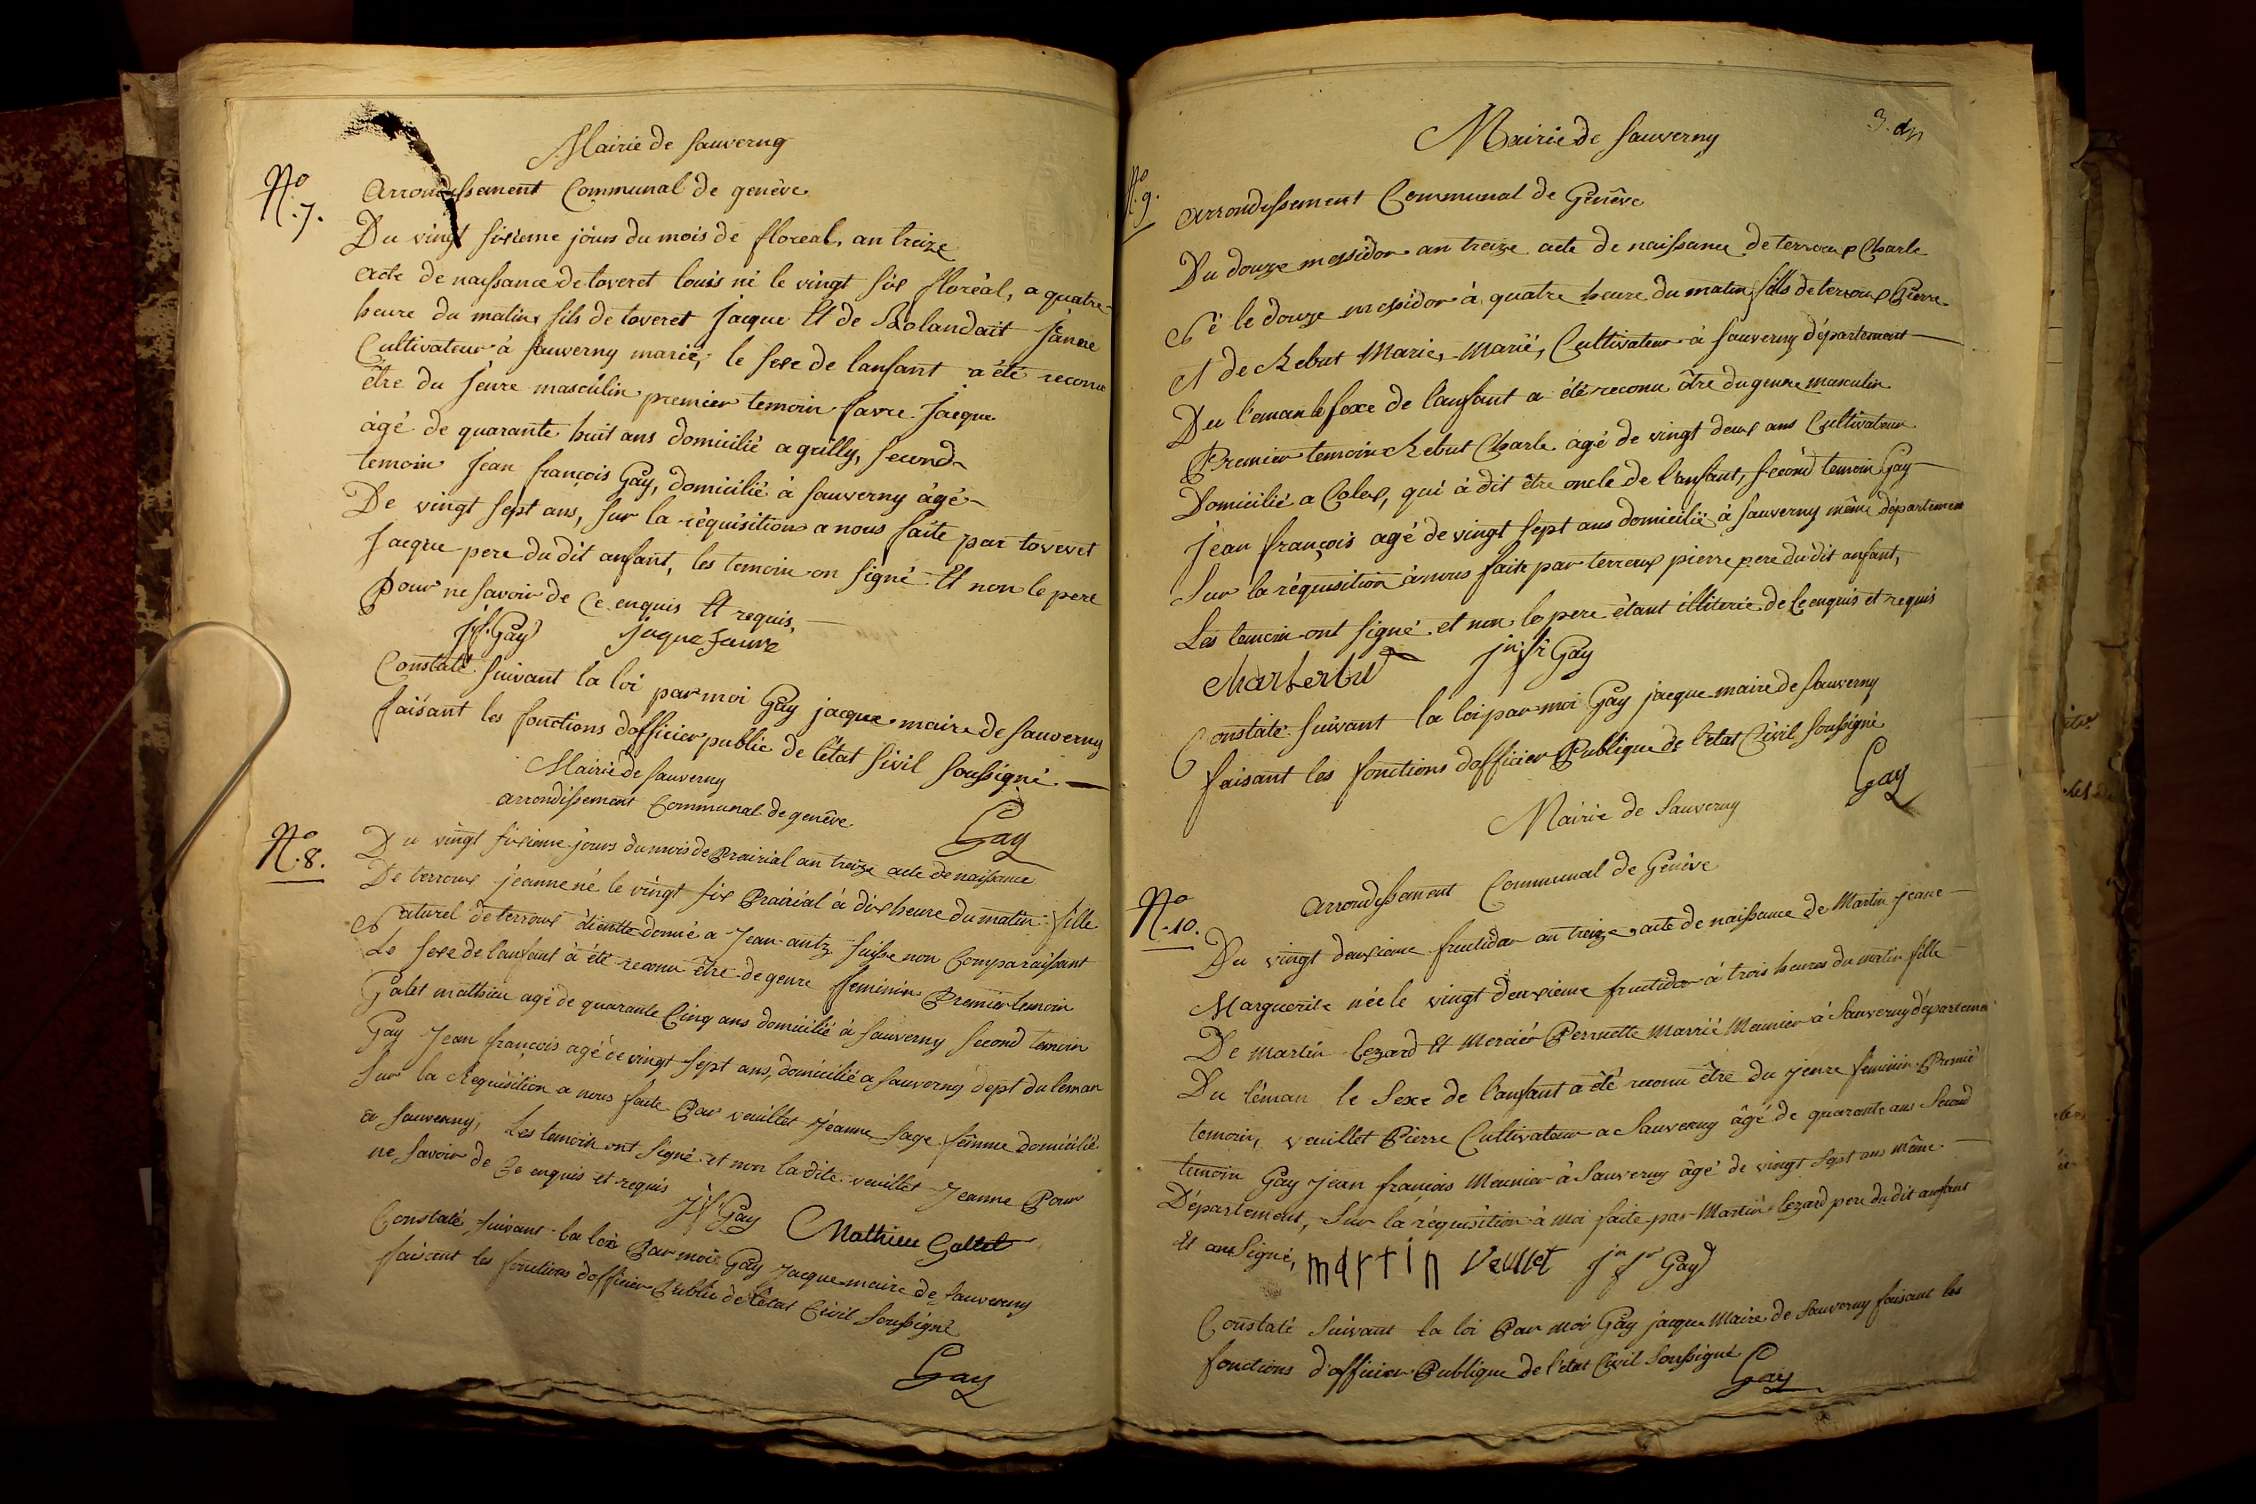 Mairie de Sauverny
N.o 7.
Arrondissement Communal de genève
Du vingt sixieme jours du mois de floreal, an treize
acte de naissance de toveret louis né le vingt six floréal, a quatre
heure du matin, fils de toveret Jacque Et de Rolandait jeanne
Cultivateur à Sauverny marié, le sexe de lanfant a été reconu
être du jenre masculin premier temoin favre Jacque
âgé de quarante huit ans domicilié a grilly, Second
temoin Jean françois Gay, domicilié à Sauverny âgé
De vingt sept ans, Sur la réquisition a nous faite par toveret
Jacque pere du dit anfant, les temoin on signé Et non le pere
Pour ne savoir de Ce enquis Et requis,
J.f. Gay jaque favre
Constaté suivant la loi par moi Gay jacque maire de Sauverny
faisant les fonctions dofficier public de létat Sivil soussigné
Gay
Mairie de Sauverny
arrondissement Communal de genêve
N.o 8.
Du vingt sixieme jours du mois de Prairial an treize acte de naissance
De terroux jeanne né le vingt six Prairial à dix heure du matin fille
Naturel de terroux donné a Jean antz suisse non Comparaissant
Le sexe de lanfant à été reconu être de genre feminin Premier temoin
Galet mathieu agé de quarante Cinq ans domicilié à Sauverny second temoin
Gay Jean françois agé de vingt sept ans, domicilié a Sauverny dept du leman
Sur la Requisition a nous faite Par veuillet Jéanne sage femme domicilié
a Sauverny, Les temoin ont signé et non la dite veuillet Jeanne Pour
ne savoir de Ce enquis et requis
J.f. Gay Mathieu Gallet
Constaté suivant la loi Par moi Gay Jacque maire de Sauverny
faisant les fonctions dofficier Public de létat Civil soussigné
Gay
3.
Mairie de Sauverny
N.o 9.
arrondissement Communal de Genêve
Du douze messidor an treize acte de naissance de terroux Charle
Né le douze messidor à quatre heure du matin fils de terroux Pierre
Et de Rebut Marie, Marié, Cultivateur à Sauverny département
Du léman le sexe de l'anfant a été reconu être du genre masculin
Premier temoin Rebut Charle agé de vingt deux ans Cultivateur
Domicilié a Colex, qui à dit être oncle de l'anfant, second temoin Gay
Jéan françois agé de vingt sept ans domicilié à Sauverny même département
Sur la réquisition à nous faite par terroux pierre pere du dit anfant,
Les temoin ont signé et non le pere étant illiteré de Ce enquis et requis
jn fr Gay
Constaté suivant la loi par moi Gay jacque maire de Sauverny
faisant les fonctions dofficier Publique de létat Civil soussigné
Gay
Mairie de Sauverny
arrondissement Communal de Genêve
N.o 10.
Du vingt deuxieme fructidor an treize acte de naissance de Martin jeane
Marguerite née le vingt deuxieme fructidor à trois heures du matin fille
De Martin lezard Et Mercier Pernette Marrié Meunier à Sauverny département
Du léman le Sexe de l'anfant a été reconu être du jenre feminin Premié
temoin, veuillet Pierre Cultivateur a Sauverny âgé de quarante ans Second
temoin Gay Jean francois Meunier à Sauverny âgé de vingt sept ans même
Département, Sur la réquisition à moi faite par Martin lezard pere du dit anfant
Et ont Signé, martin veullet jn fr Gay
Constaté suivant la loi Par moi Gay jacque Maire de Sauverny faisant les
fonctions d'officier Publique de létat Civil Soussigné
Gay